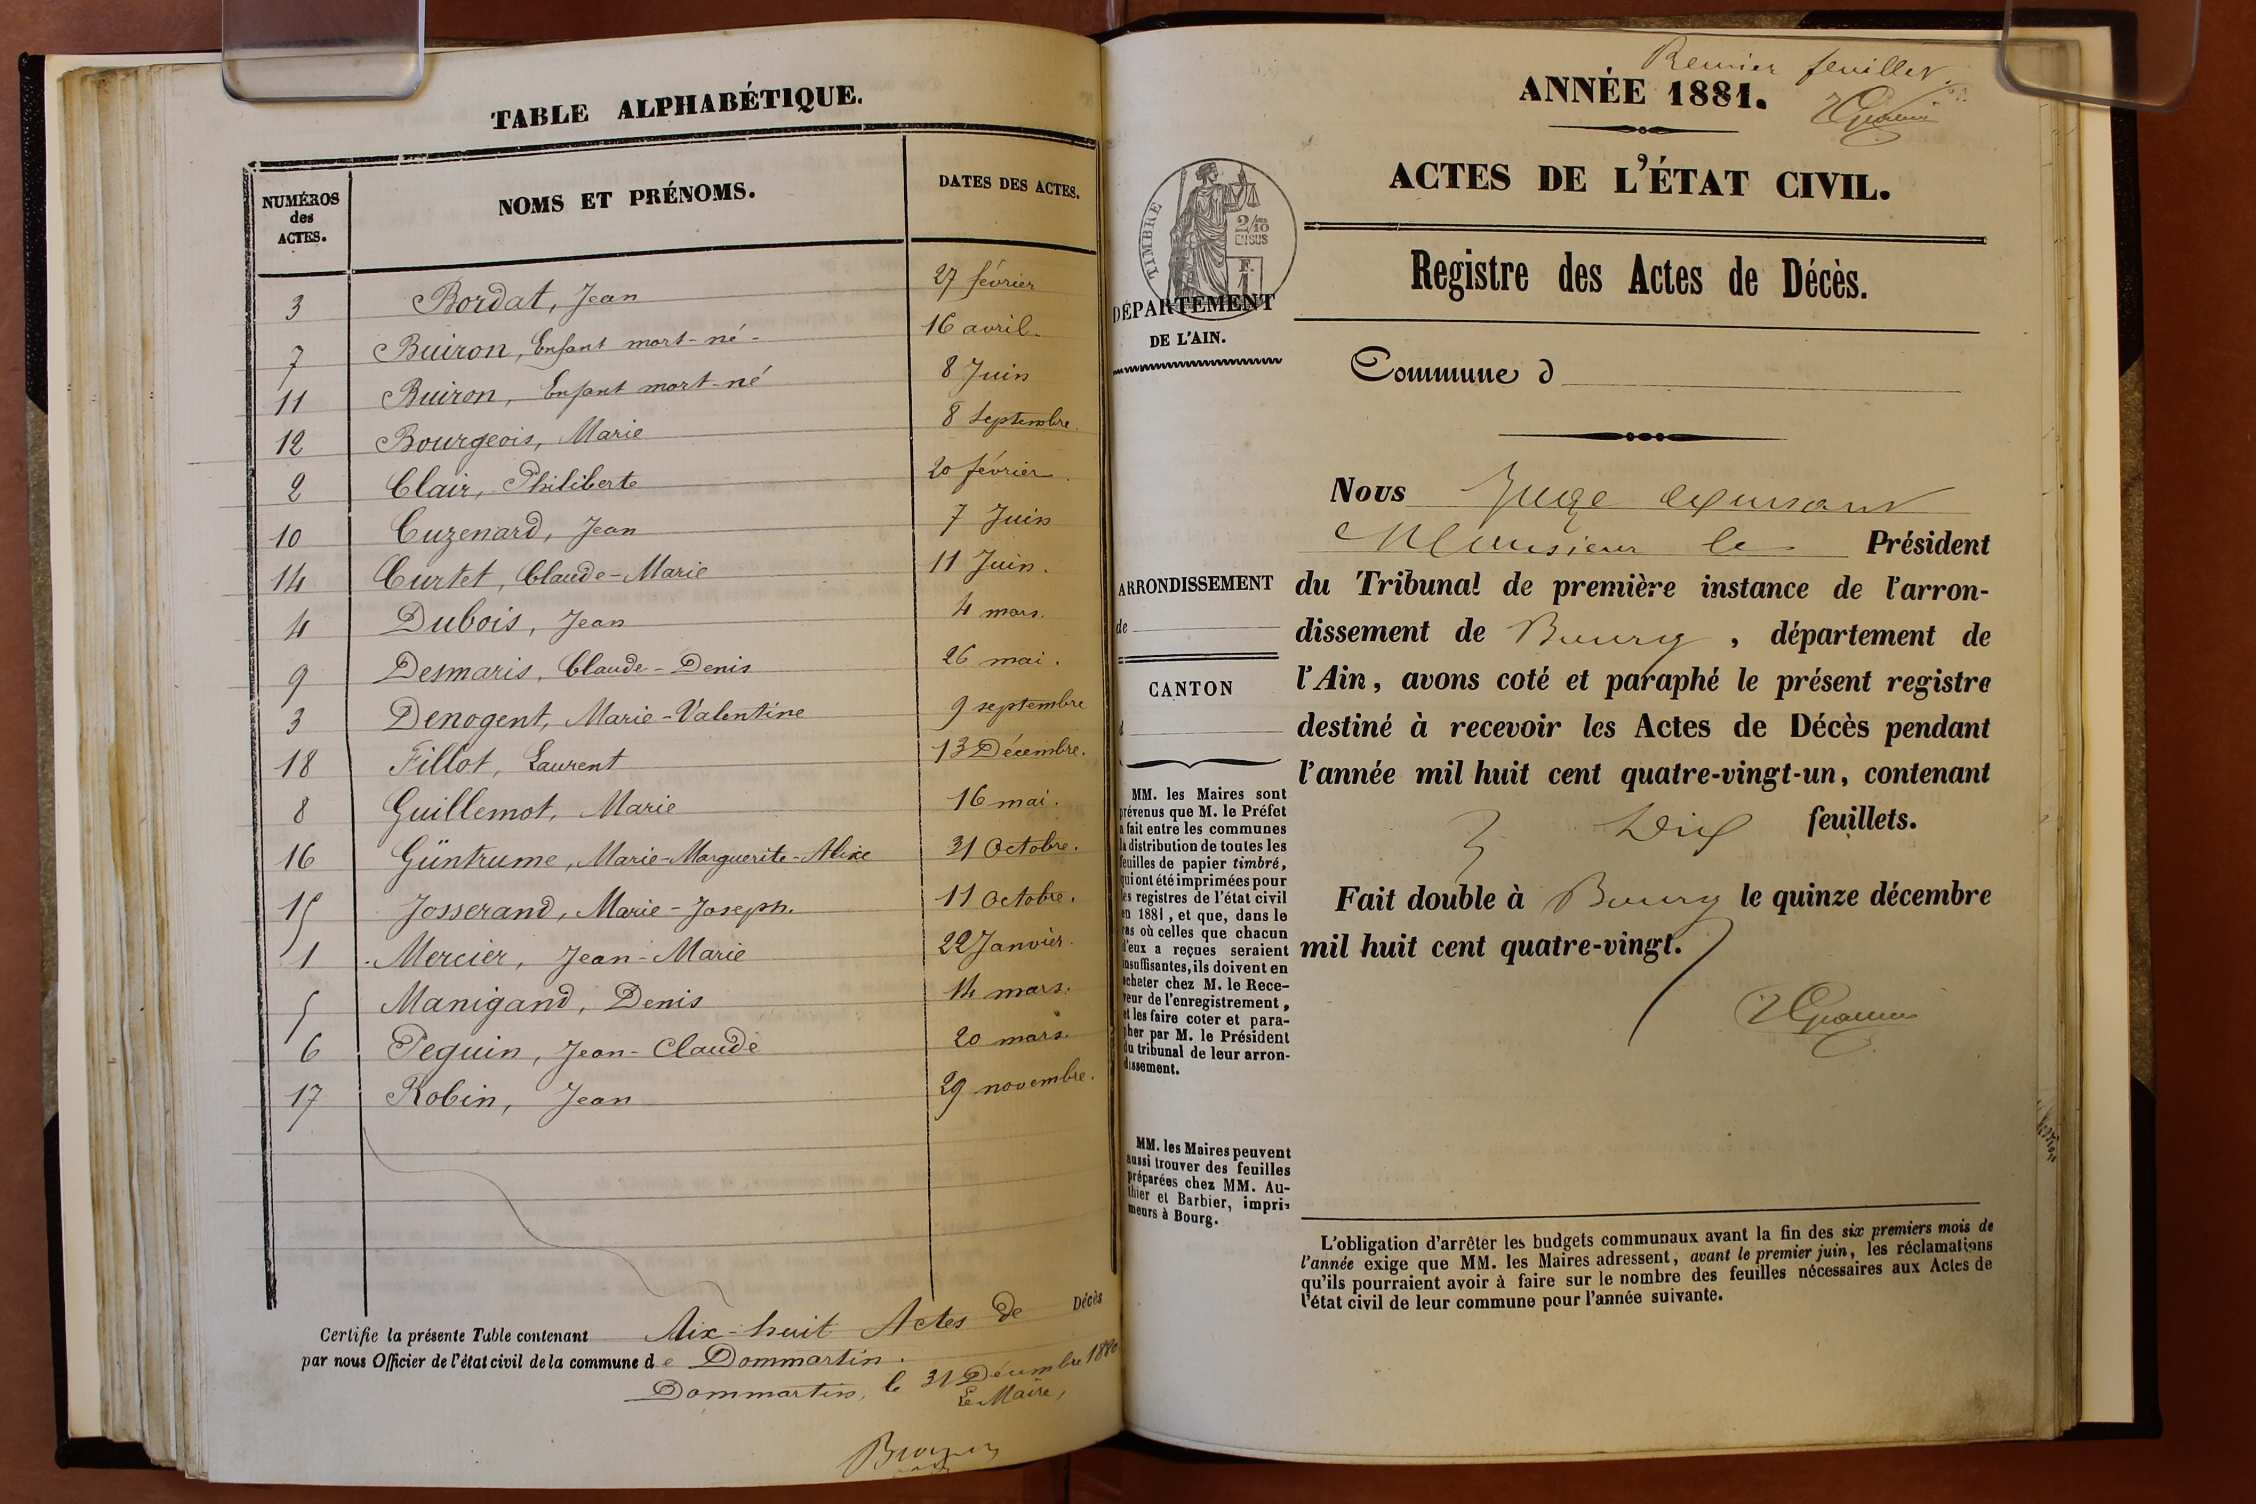 TABLE ALPHABÉTIQUE.
NUMÉROS
des
ACTES.
NOMS ET PRÉNOMS.
DATES DES ACTES.
3 Bordat, Jean 27 février
7 Buiron, Enfant mort-né - 16 avril.
11 Buiron, Enfant mort-né 8 Juin
12 Bourgeois, Marie 8 Septembre.
2 Clair, Philiberte 20 février.
10 Cuzenard, Jean 7 Juin
14 Curtet, Claude-Marie 11 Juin.
4 Dubois, Jean 4 mars.
9 Desmaris, Claude-Denis 26 mai.
3 Denogent, Marie-Valentine 9 septembre
18 Fillot, Laurent 13 Décembre.
8 Guillemot, Marie 16 mai.
16 Güntrume, Marie-Marguerite-Alixe 31 Octobre.
15 Josserand, Marie-Joseph. 11 Octobre.
1 Mercier, Jean-Marie 22 Janvier.
5 Manigand, Denis 14 mars.
6 Peguin, Jean-Claude 20 mars.
17 Robin, Jean 29 novembre.
Certifie la présente Table contenant Dix-huit Actes de Décès
par nous Officier de l'état civil de la commune de Dommartin.
Dommartin, le 31 Décembre 1880
Le Maire,
Premier feuillet.
ANNÉE 1881.
ACTES DE L'ÉTAT CIVIL.
Registre des Actes de Décès.
TIMBRE
2/10
EN SUS
F.
1
DÉPARTEMENT
DE L'AIN.
Commune d
Nous Juge exerçant
Monsieur le Président
du Tribunal de première instance de l'arron-
dissement de Bourg, département de
l'Ain, avons coté et paraphé le présent registre
destiné à recevoir les Actes de Décès pendant
l'année mil huit cent quatre-vingt-un, contenant
Dix feuillets.
Fait double à Bourg le quinze décembre
mil huit cent quatre-vingt.
ARRONDISSEMENT
de
CANTON
d
MM. les Maires sont
prévenus que M. le Préfet
a fait entre les communes
la distribution de toutes les
feuilles de papier timbré,
qui ont été imprimées pour
les registres de l'état civil
en 1881, et que, dans le
cas où celles que chacun
d'eux a reçues seraient
insuffisantes, ils doivent en
acheter chez M. le Rece-
veur de l'enregistrement,
et les faire coter et para-
pher par M. le Président
du tribunal de leur arron-
dissement.
MM. les Maires peuvent
aussi trouver des feuilles
préparées chez MM. Au-
thier et Barbier, impri-
meurs à Bourg.
L'obligation d'arrêter les budgets communaux avant la fin des six premiers mois de
l'année exige que MM. les Maires adressent, avant le premier juin, les réclamations
qu'ils pourraient avoir à faire sur le nombre des feuilles nécessaires aux Actes de
l'état civil de leur commune pour l'année suivante.